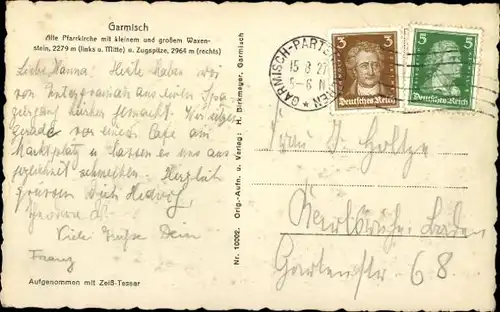 Garmisch
Alte Pfarrkirche mit kleinem und großem Waxen-
stein, 2279 m (links u. Mitte) u. Zugspitze, 2964 m (rechts)
Liebe Mama! Heute haben wir
von Untergrainau aus einen Spa
ziergang hierher gemacht. Wir sitzen
gerade vor einem Café am
Marktplatz u. lassen es uns aus
gezeichnet schmecken. Herzlich
grüssen Dich Hedwig,
Viele Grüße Dein
Franz
Aufgenommen mit Zeiß-Tessar
Nr. 10002. Orig.-Aufn. u. Verlag: H. Birkmeyer, Garmisch
GARMISCH-PARTENKIRCHEN
15 8 27
5-6 N
3 3
Deutsches Reich
5 5
Deutsches Reich
Frau G. Holtze
Karlsruhe Baden
Gartenstr 68.